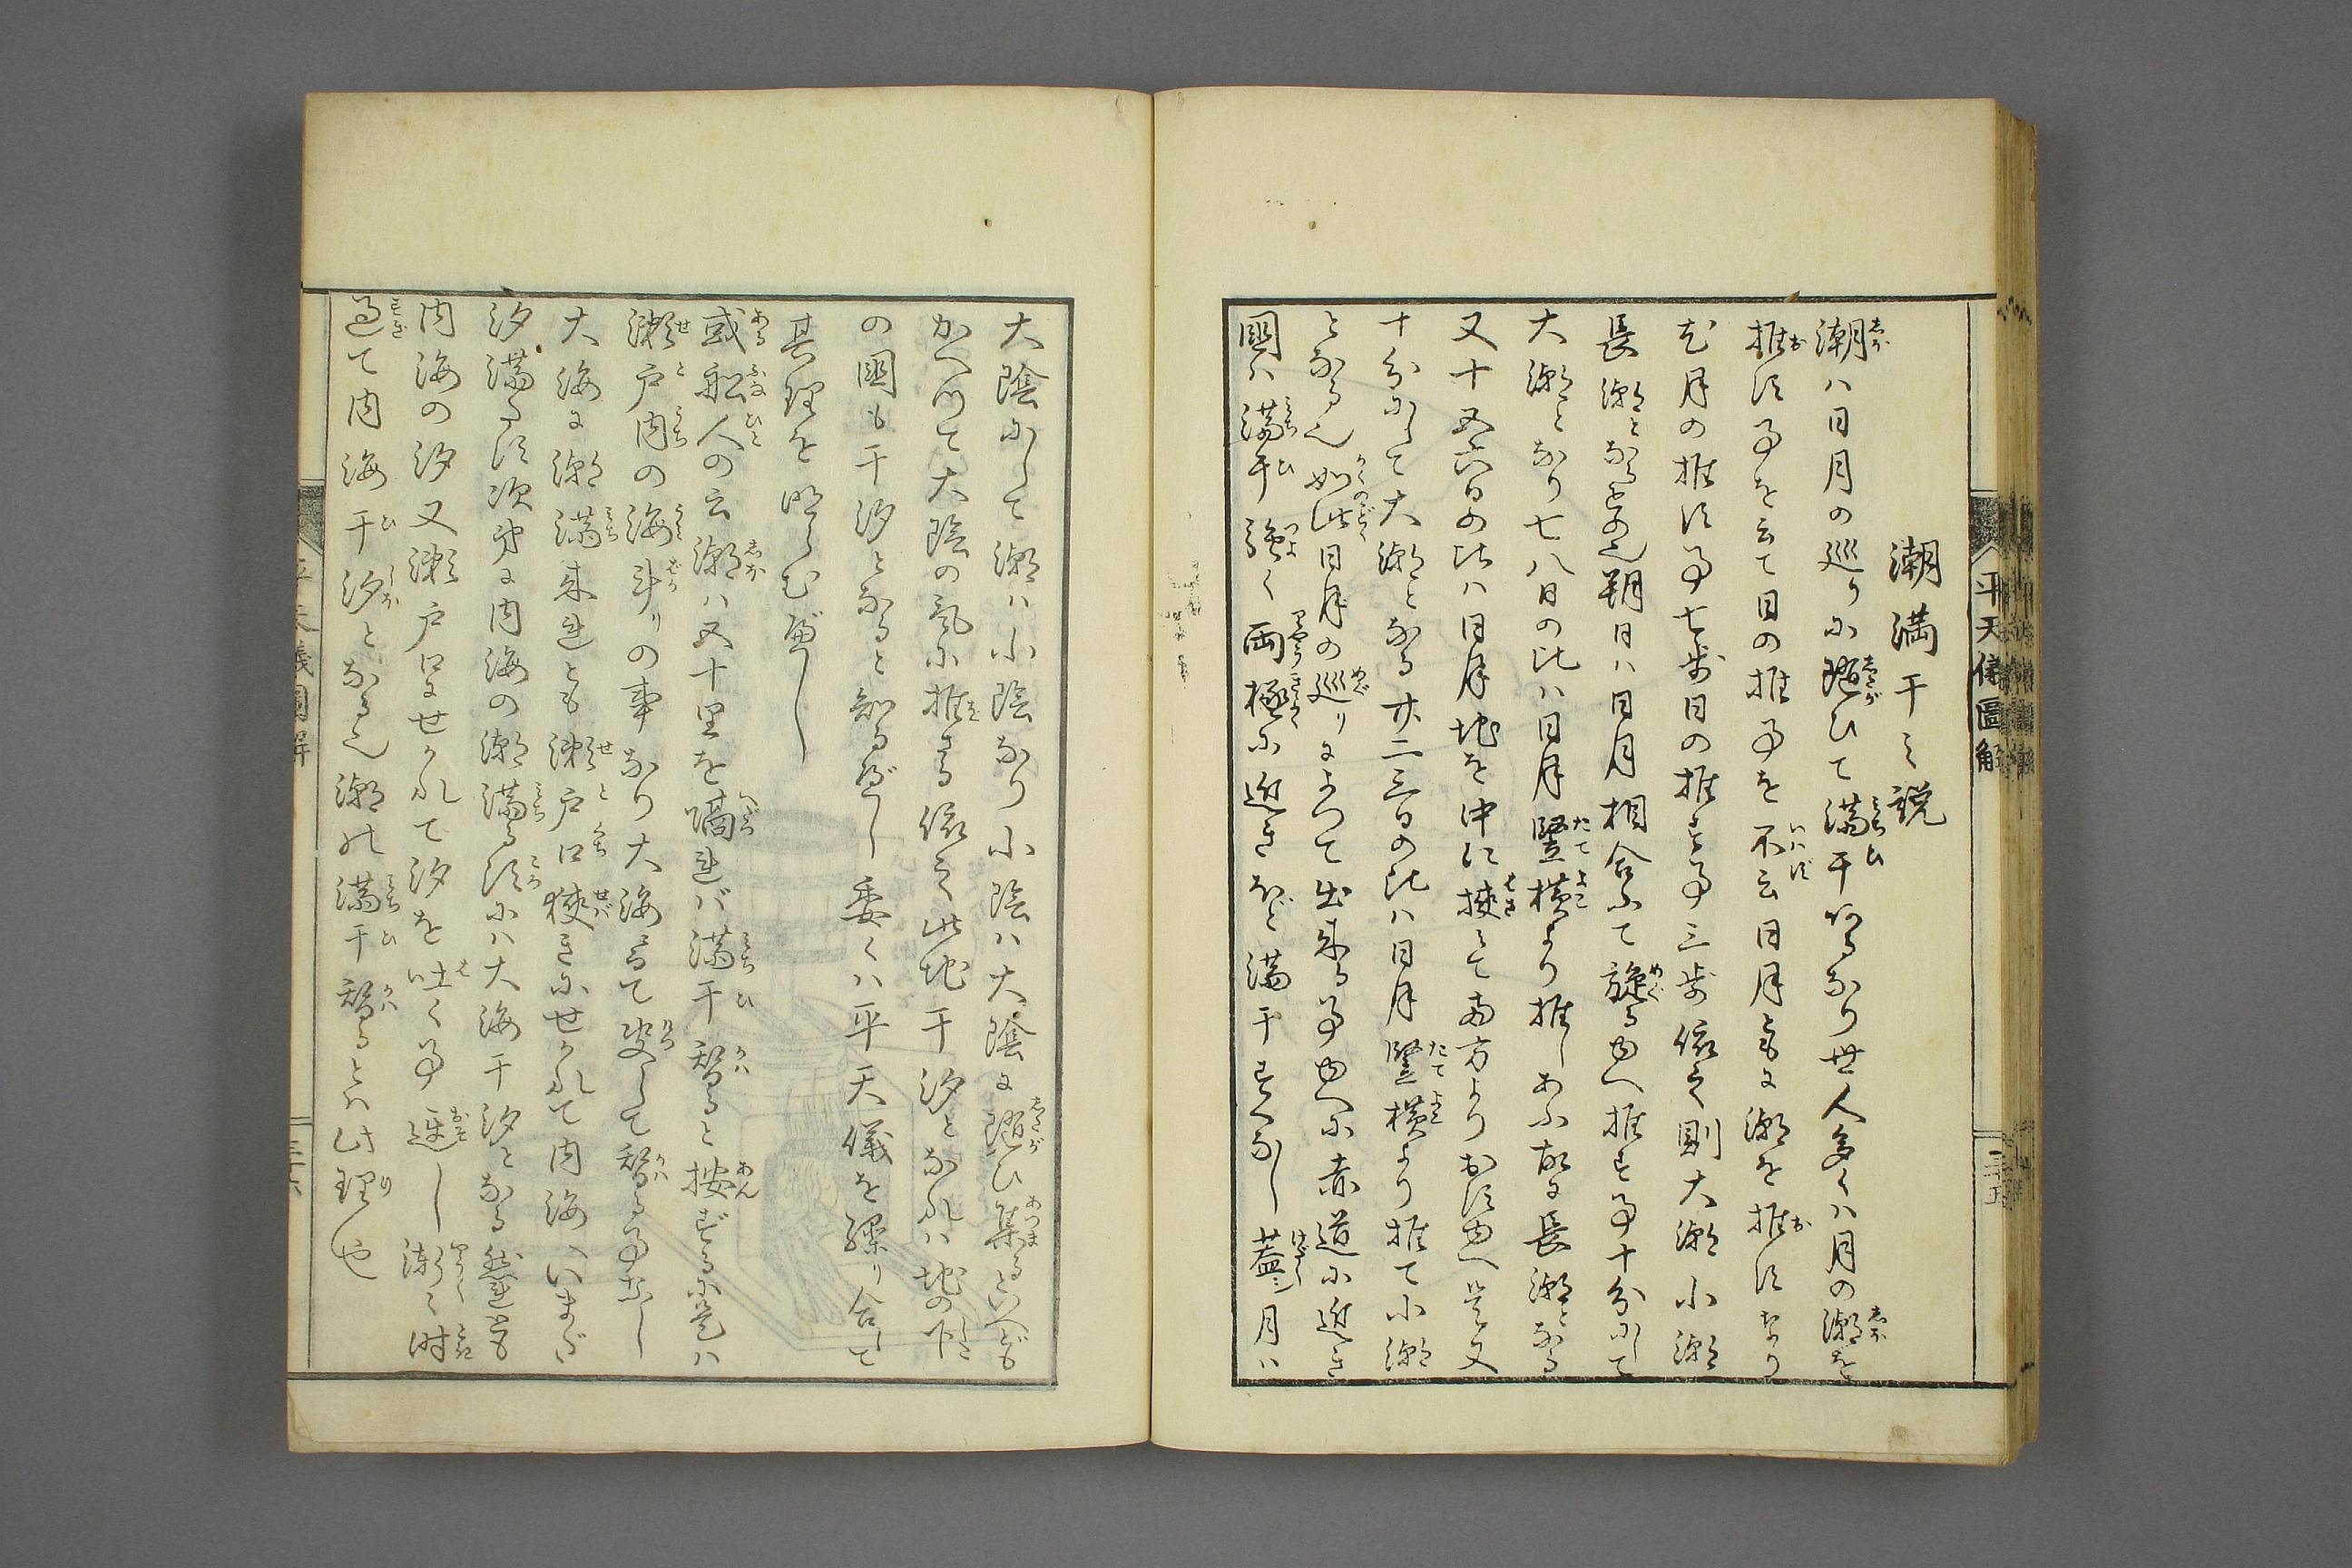 潮満干之説
潮ハ日月の巡りに随ひて満干行るなり世人多くハ月の潮を
推す事を云て日の推事を不云日月ともに潮を推すなり
尤月の推す事七歩日の推す事三歩依之則大潮小潮
長潮となると也朔日ハ日月相合ふて旋るゆへ推す事十分にして
大潮となり七八日の比ハ日月竪横より推しあふ故に長潮となる
又十五六日の比ハ日月地を中に挟て両方よりおすゆへ是又
十分にして大潮となる廿二三日の比ハ日月竪横より推て小潮
となる也如此日月の巡りによつて出来る事ゆへに赤道に近き
国ハ満干強く両極に近きほど満干すくなし蓋シ月ハ
大陰にして潮ハ小陰なり小陰ハ大陰に随ひ集るといへども
かへつて大陰の気に推さる依之此地干汐となれハ地の下
の国も干汐となると知るべし委くハ平天儀を繰り合して
其理を明らむべし
或船人の云潮ハ五十里を隔れバ満干替ると按ずるに是ハ
瀬戸内の海斗りの事なり大海にて決して替る事なし
大海に潮満来れとも瀬戸口狭きにせかれて内海へいまだ
汐満たす次第に内海の潮満る頃にハ大海干汐となる然れども
内海の汐又瀬戸口にせかれて汐を吐く事遅し漸々時
過て内海干汐となる也潮の満干替るとハ此理や
平天儀図解
三十五
平天儀図解
三十六